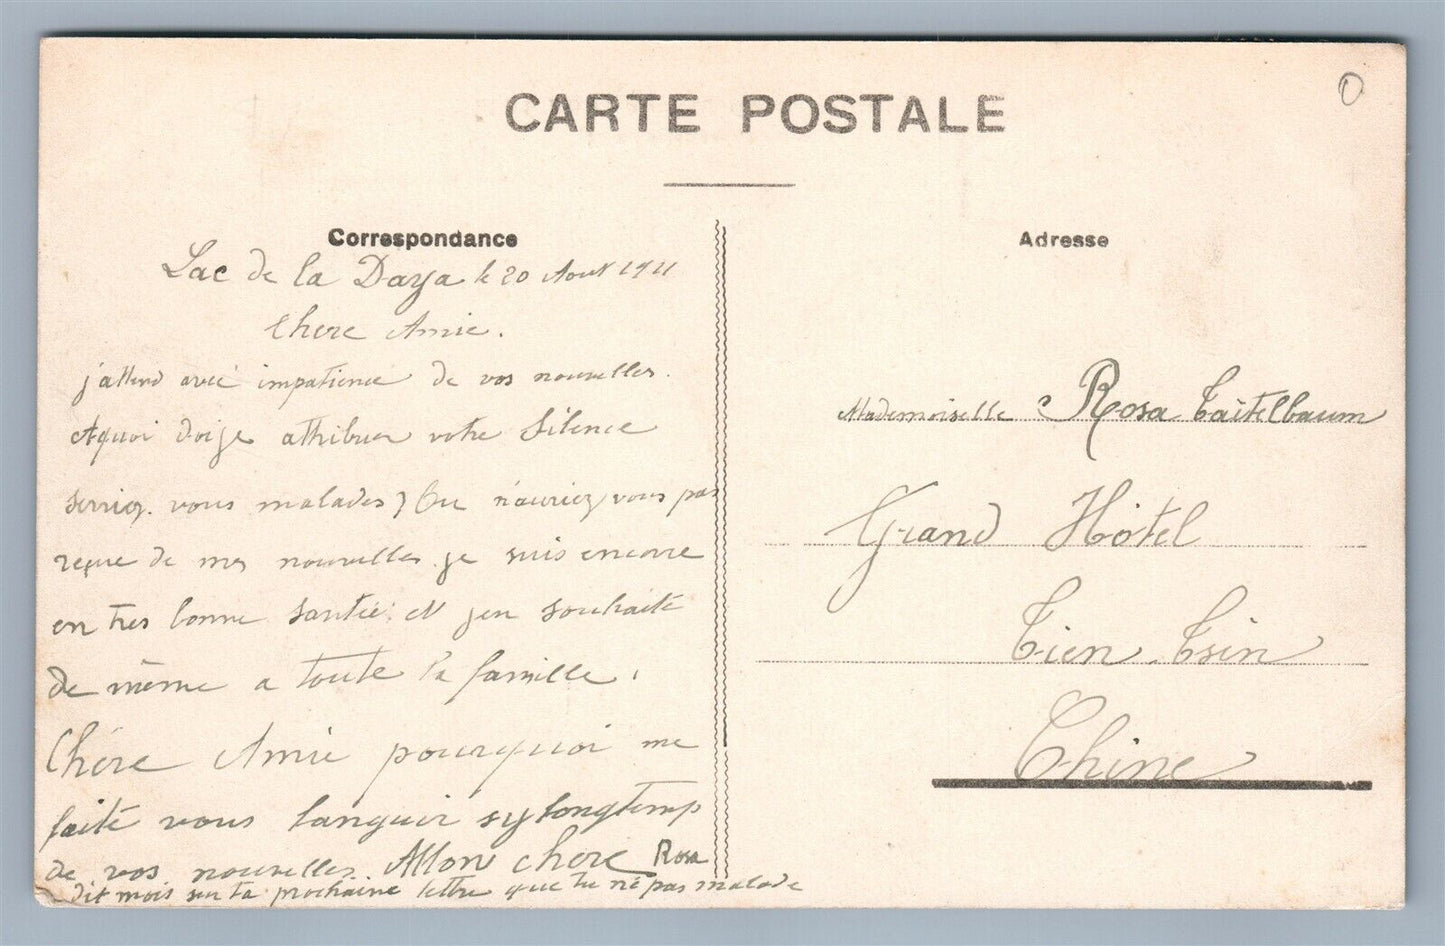 CARTE POSTALE
Correspondance
Lac de la Daya le 20 Aout 1911
Chere Amie.
j'attend avec impatience de vos nouvelles.
Aquoi doije attribuer votre Silence
serriez. vous malades? Ou n'auriez vous pas
reçue de mes nouvelles je suis encore
en tres bonne santée. et j'en souhaite
de même a toute la famille.
Chére Amie pourquoi me
faite vous languir sy longtemps
de vos nouvelles. Allon chere Rosa
dit mois sur ta prochaine lettre que tu né pas malade
O
Adresse
Mademoiselle Rosa Taîtelbaum
Grand Hôtel
Tien Tsin
Chine